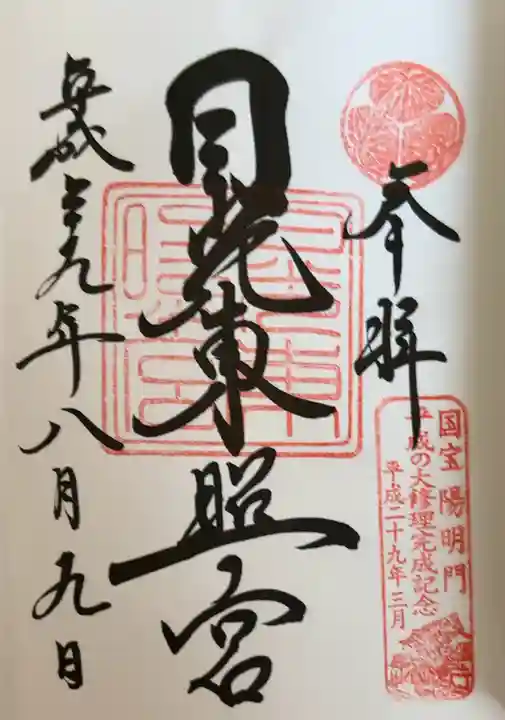 奉拝
国宝 陽明門
平成の大修理完成記念
平成二十九年三月
日光東照宮
平成二十九年八月九日